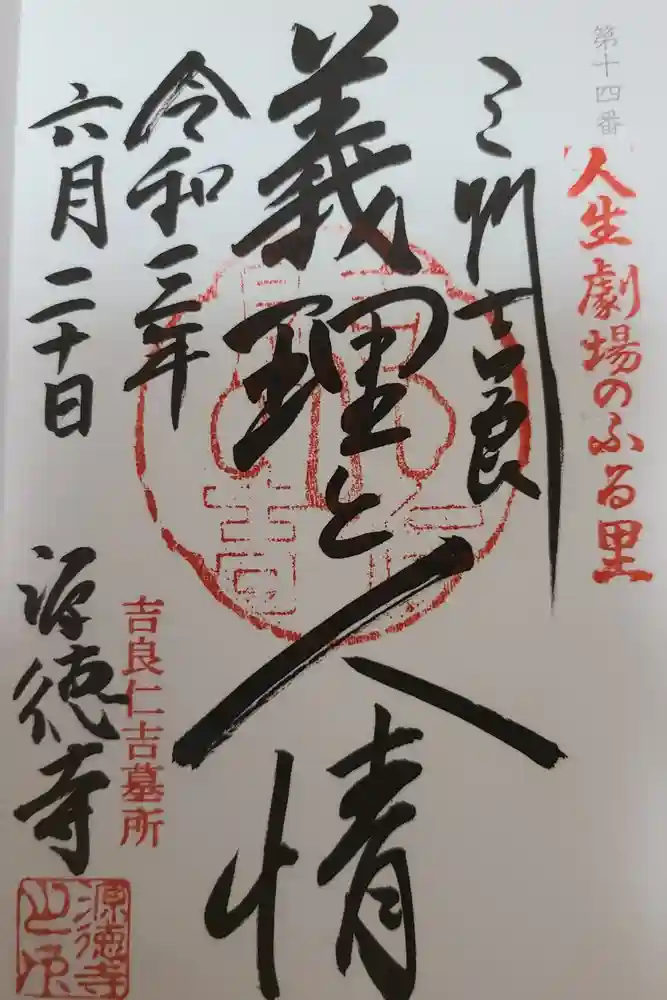 第十四番
人生劇場のふる里
三州吉良
義理と人情
令和三年
六月二十日
吉良仁吉墓所
源徳寺
源徳寺